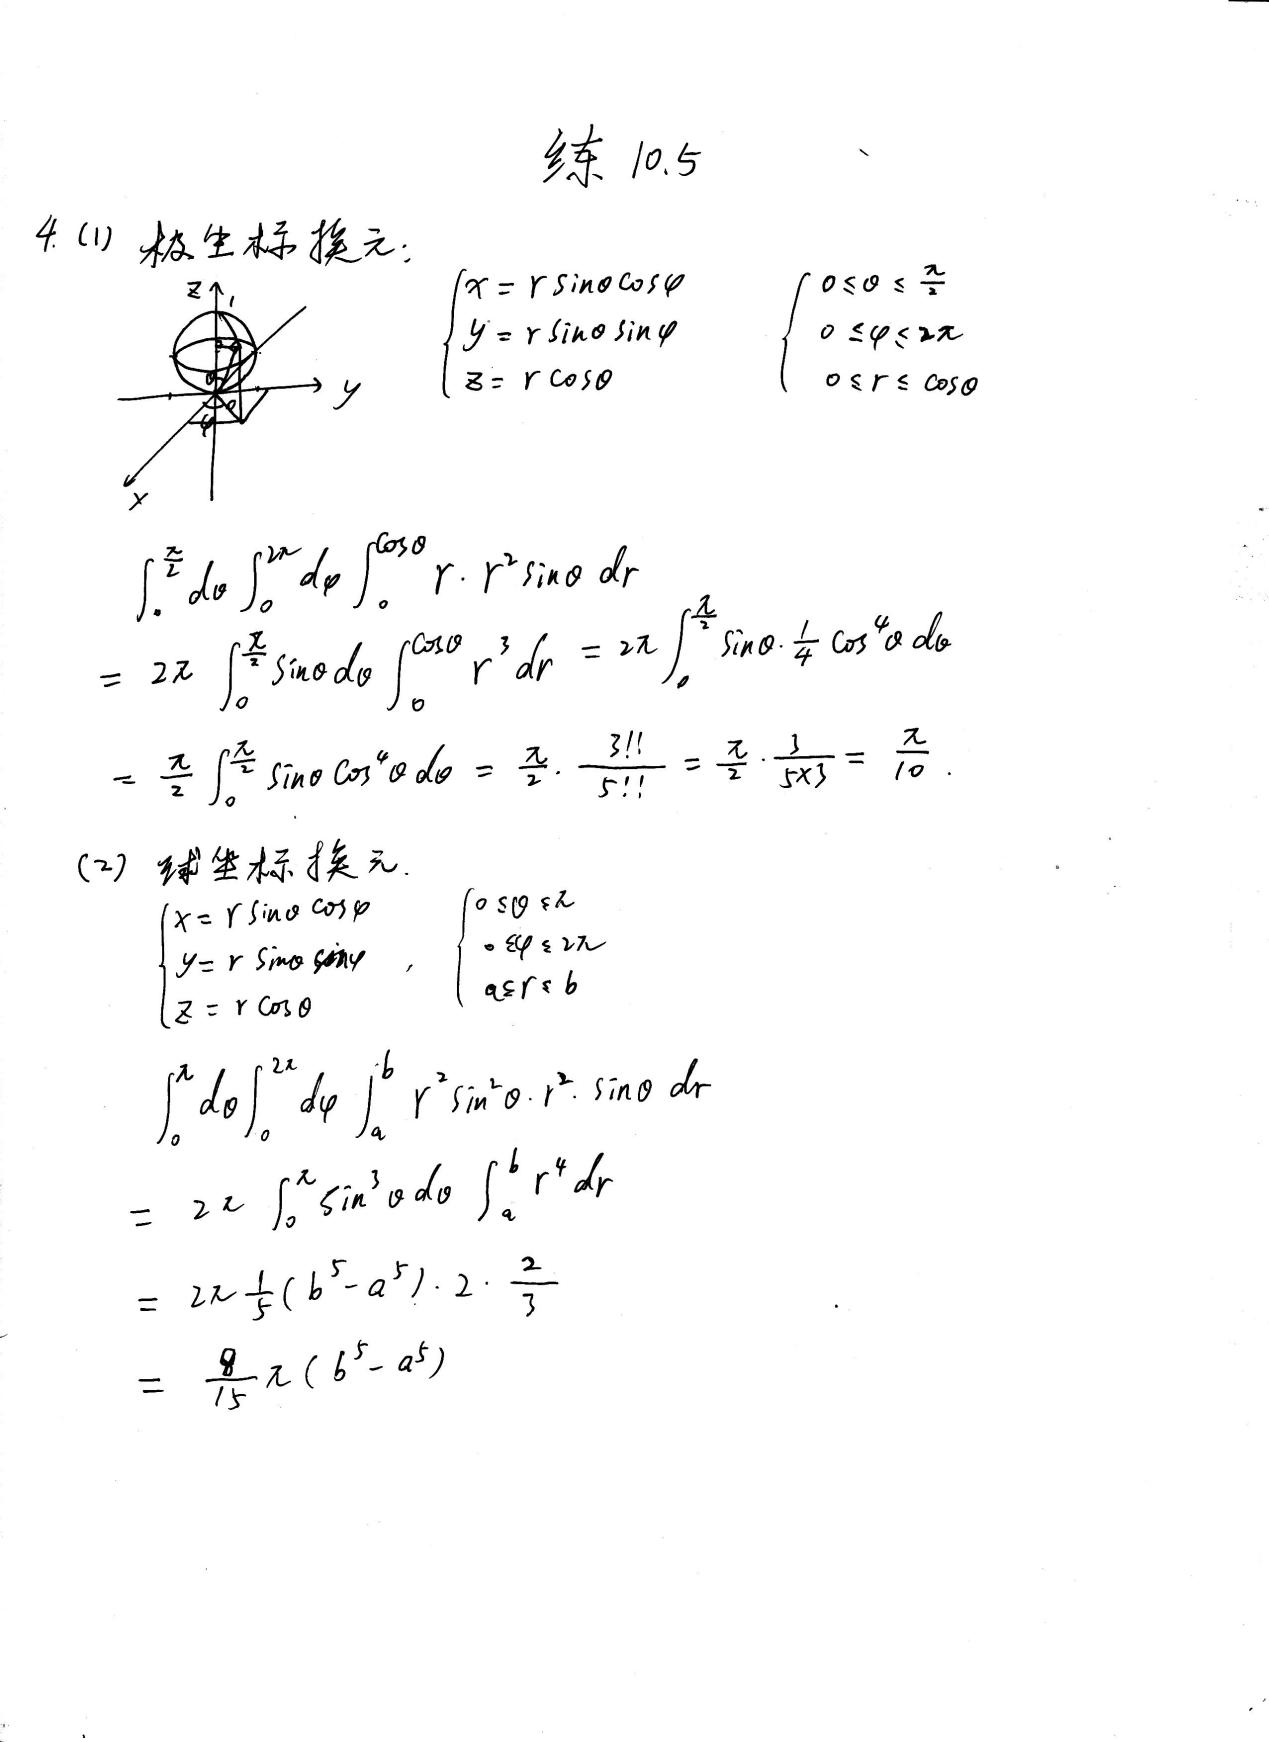 练 10.5
4. (1) 极坐标换元:
z 1 y x θ θ φ
{ x = r sinθ cosφ
y = r sinθ sinφ
z = r cosθ
{ 0 ≤ θ ≤ π/2
0 ≤ φ ≤ 2π
0 ≤ r ≤ cosθ
∫₀^{π/2} dθ ∫₀^{2π} dφ ∫₀^{cosθ} r · r² sinθ dr
= 2π ∫₀^{π/2} sinθ dθ ∫₀^{cosθ} r³ dr = 2π ∫₀^{π/2} sinθ · 1/4 cos⁴θ dθ
= π/2 ∫₀^{π/2} sinθ cos⁴θ dθ = π/2 · 3!!/5!! = π/2 · 3/(5×3) = π/10 .
(2) 球坐标换元.
{ x = r sinθ cosφ
y = r sinθ sinφ ,
z = r cosθ
{ 0 ≤ θ ≤ π
0 ≤ φ ≤ 2π
a ≤ r ≤ b
∫₀^π dθ ∫₀^{2π} dφ ∫ₐ^b r² sin²θ · r² · sinθ dr
= 2π ∫₀^π sin³θ dθ ∫ₐ^b r⁴ dr
= 2π 1/5 (b⁵ - a⁵) · 2 · 2/3
= 8/15 π (b⁵ - a⁵)